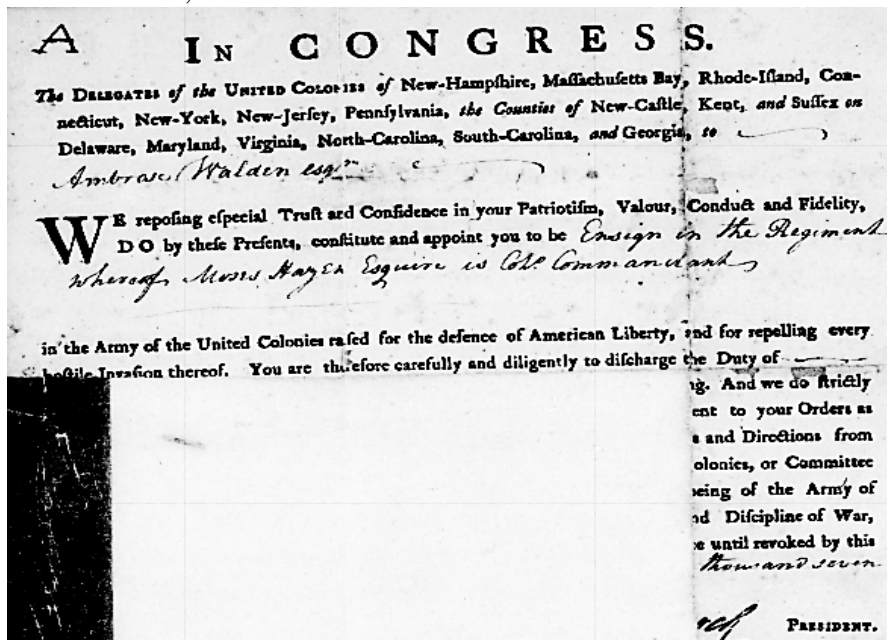 A
IN CONGRESS.
The DELEGATES of the UNITED COLONIES of New-Hampſhire, Maſſachuſetts Bay, Rhode-Iſland, Con-
necticut, New-York, New-Jerſey, Pennſylvania, the Counties of New-Caſtle, Kent, and Suſſex on
Delaware, Maryland, Virginia, North-Carolina, South-Carolina, and Georgia, to
Ambrose Walden esqr
WE repoſing eſpecial Truſt and Confidence in your Patriotiſm, Valour, Conduct and Fidelity,
DO by theſe Preſents, conſtitute and appoint you to be Ensign in the Regiment
whereof Moses Hazen Esquire is Colo Commandant
in the Army of the United Colonies raiſed for the defence of American Liberty, and for repelling every
hoſtile Invaſion thereof. You are therefore carefully and diligently to diſcharge the Duty of
ng. And we do ſtrictly
ent to your Orders as
s and Directions from
olonies, or Committee
being of the Army of
nd Diſcipline of War,
e until revoked by this
thousand seven
PRESIDENT.